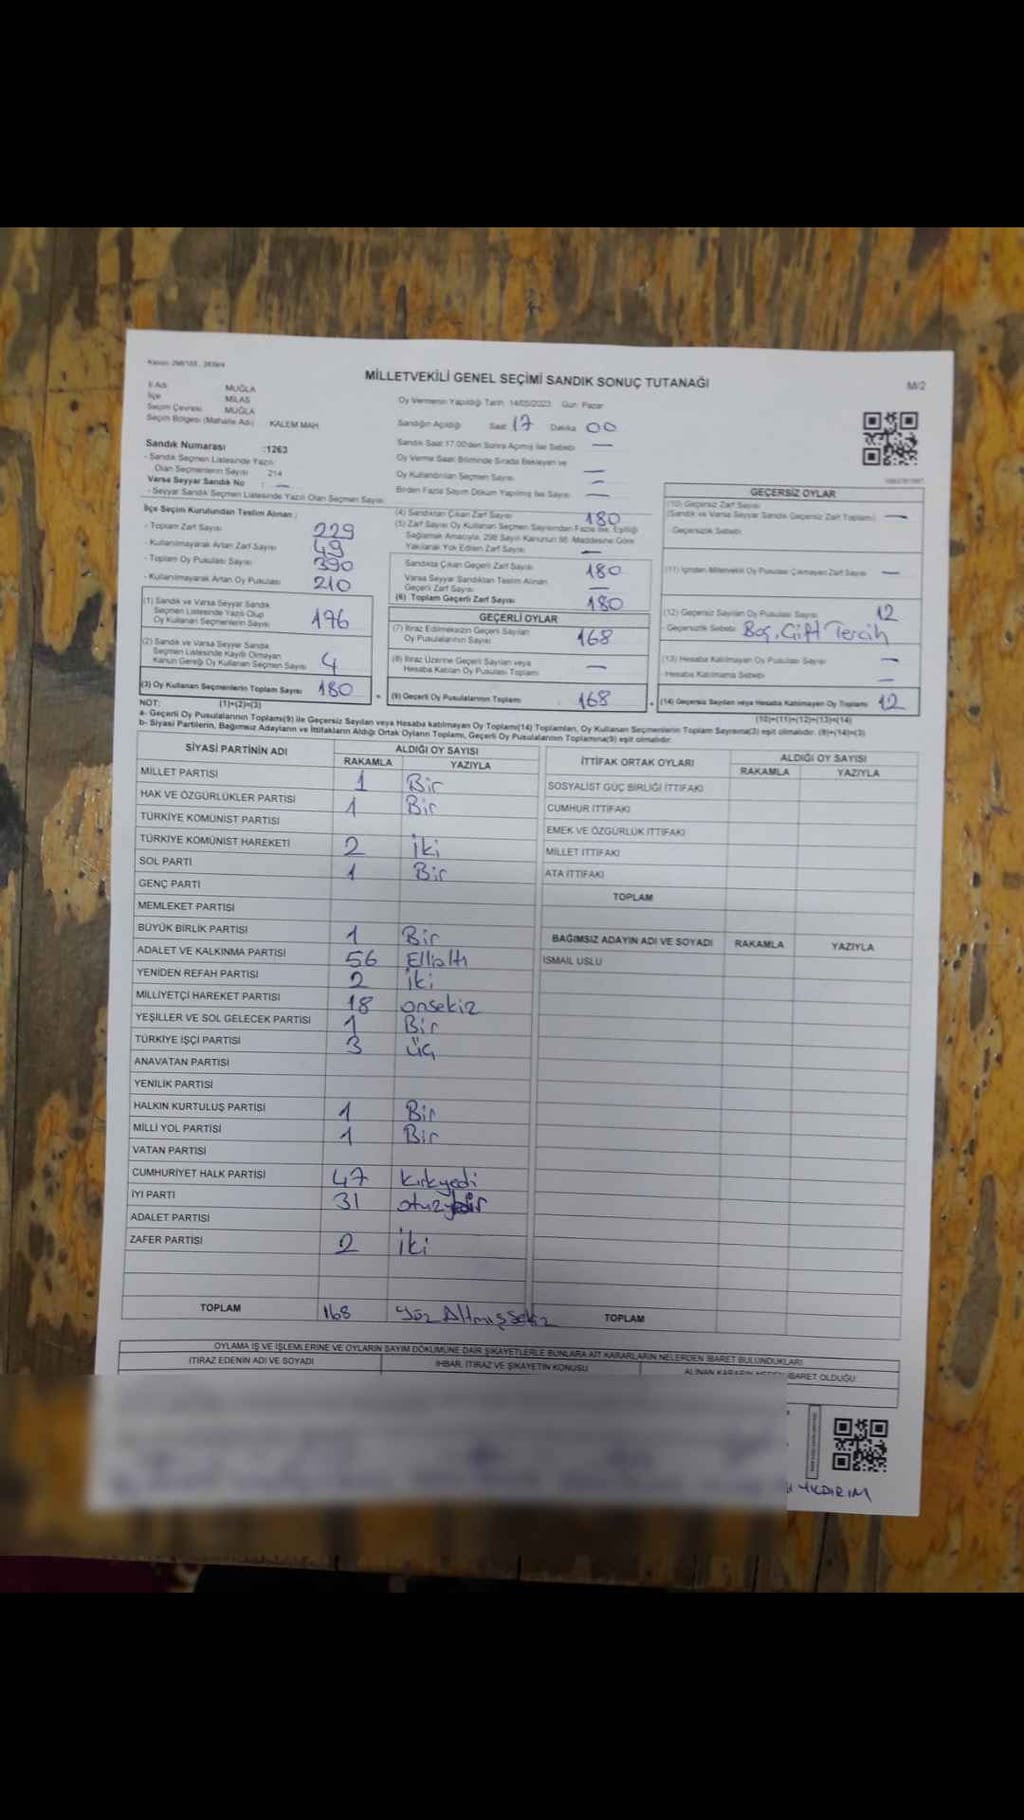 MİLLETVEKİLİ GENEL SEÇİMİ SANDIK SONUÇ TUTANAĞI
M/2
İl Adı MUĞLA
İlçe MİLAS
Seçim Çevresi MUĞLA
Seçim Bölgesi (Mahalle Adı) KALEM MAH
Oy Vermenin Yapıldığı Tarih 14/05/2023 Gün: Pazar
Sandığın Açıldığı Saat 17 Dakika 00
Sandık Saat 17.00'den Sonra Açılmış İse Sebebi —
Oy Verme Saati Bitiminde Sırada Bekleyen ve
Oy Kullandırılan Seçmen Sayısı —
Birden Fazla Sayım Döküm Yapılmış İse Sayısı —
Sandık Numarası :1263
- Sandık Seçmen Listesinde Yazılı
Olan Seçmenlerin Sayısı 214
Varsa Seyyar Sandık No : —
- Seyyar Sandık Seçmen Listesinde Yazılı Olan Seçmen Sayısı
İlçe Seçim Kurulundan Teslim Alınan :
- Toplam Zarf Sayısı 229
- Kullanılmayarak Artan Zarf Sayısı 49
- Toplam Oy Pusulası Sayısı 390
- Kullanılmayarak Artan Oy Pusulası 210
(1) Sandık ve Varsa Seyyar Sandık
Seçmen Listesinde Yazılı Olup
Oy Kullanan Seçmenlerin Sayısı 176
(2) Sandık ve Varsa Seyyar Sandık
Seçmen Listesinde Kayıtlı Olmayan
Kanun Gereği Oy Kullanan Seçmen Sayısı 4
(3) Oy Kullanan Seçmenlerin Toplam Sayısı 180
(4) Sandıktan Çıkan Zarf Sayısı 180
(5) Zarf Sayısı Oy Kullanan Seçmen Sayısından Fazla İse, Eşitliği
Sağlamak Amacıyla, 298 Sayılı Kanunun 98. Maddesine Göre
Yakılarak Yok Edilen Zarf Sayısı —
Sandıkta Çıkan Geçerli Zarf Sayısı 180
Varsa Seyyar Sandıktan Teslim Alınan
Geçerli Zarf Sayısı —
(6) Toplam Geçerli Zarf Sayısı 180
GEÇERLİ OYLAR
(7) İtiraz Edilmeksizin Geçerli Sayılan
Oy Pusulalarının Sayısı 168
(8) İtiraz Üzerine Geçerli Sayılan veya
Hesaba Katılan Oy Pusulası Toplamı —
(9) Geçerli Oy Pusulalarının Toplamı 168
GEÇERSİZ OYLAR
(10) Geçersiz Zarf Sayısı
(Sandık ve Varsa Seyyar Sandık Geçersiz Zarf Toplamı) —
Geçersizlik Sebebi
(11) İçinden Milletvekili Oy Pusulası Çıkmayan Zarf Sayısı —
(12) Geçersiz Sayılan Oy Pusulası Sayısı 12
Geçersizlik Sebebi Boş, Çift Tercih
(13) Hesaba Katılmayan Oy Pusulası Sayısı —
Hesaba Katılmama Sebebi —
(14) Geçersiz Sayılan veya Hesaba Katılmayan Oy Toplamı 12
NOT: (1)+(2)=(3)
(10)+(11)+(12)+(13)=(14)
a- Geçerli Oy Pusulalarının Toplamı(9) ile Geçersiz Sayılan veya Hesaba katılmayan Oy Toplamı(14) Toplamları, Oy Kullanan Seçmenlerin Toplam Sayısına(3) eşit olmalıdır. (9)+(14)=(3)
b- Siyasi Partilerin, Bağımsız Adayların ve İttifakların Aldığı Ortak Oyların Toplamı, Geçerli Oy Pusulalarının Toplamına(9) eşit olmalıdır.
SİYASİ PARTİNİN ADI ALDIĞI OY SAYISI
RAKAMLA YAZIYLA
MİLLET PARTİSİ 1 Bir
HAK VE ÖZGÜRLÜKLER PARTİSİ 1 Bir
TÜRKİYE KOMÜNİST PARTİSİ
TÜRKİYE KOMÜNİST HAREKETİ 2 iki
SOL PARTİ 1 Bir
GENÇ PARTİ
MEMLEKET PARTİSİ
BÜYÜK BİRLİK PARTİSİ 1 Bir
ADALET VE KALKINMA PARTİSİ 56 Ellialtı
YENİDEN REFAH PARTİSİ 2 iki
MİLLİYETÇİ HAREKET PARTİSİ 18 onsekiz
YEŞİLLER VE SOL GELECEK PARTİSİ 1 Bir
TÜRKİYE İŞÇİ PARTİSİ 3 üç
ANAVATAN PARTİSİ
YENİLİK PARTİSİ
HALKIN KURTULUŞ PARTİSİ 1 Bir
MİLLİ YOL PARTİSİ 1 Bir
VATAN PARTİSİ
CUMHURİYET HALK PARTİSİ 47 kırkyedi
İYİ PARTİ 31 otuzbir
ADALET PARTİSİ
ZAFER PARTİSİ 2 iki
TOPLAM 168 Yüz Altmışsekiz
İTTİFAK ORTAK OYLARI ALDIĞI OY SAYISI
RAKAMLA YAZIYLA
SOSYALİST GÜÇ BİRLİĞİ İTTİFAKI
CUMHUR İTTİFAKI
EMEK VE ÖZGÜRLÜK İTTİFAKI
MİLLET İTTİFAKI
ATA İTTİFAKI
TOPLAM
BAĞIMSIZ ADAYIN ADI VE SOYADI RAKAMLA YAZIYLA
İSMAİL USLU
TOPLAM
OYLAMA İŞ VE İŞLEMLERİNE VE OYLARIN SAYIM DÖKÜMÜNE DAİR ŞİKAYETLERLE BUNLARA AİT KARARLARIN NELERDEN İBARET BULUNDUKLARI
İTİRAZ EDENİN ADI VE SOYADI İHBAR, İTİRAZ VE ŞİKAYETİN KONUSU ALINAN KARARIN NEDEN İBARET OLDUĞU
YILDIRIM